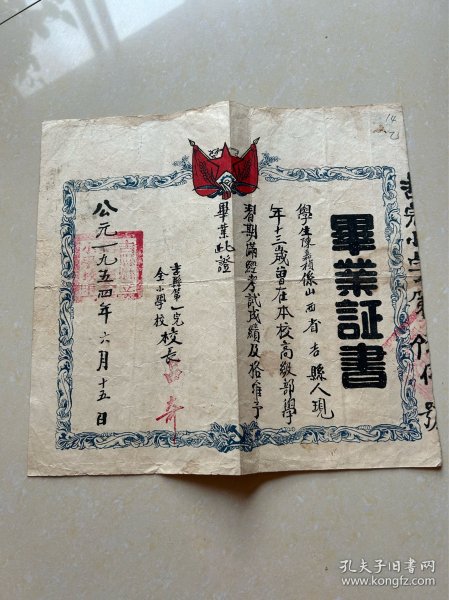 畢業証書
學生陳義楨係山西省吉縣人現
年十三歲曾在本校高級部學
習期滿經考試成績及格准予
畢業此證
吉縣第一完
全小學校
校長
公元一九五四年六月十五日
號
14
孔夫子旧书网
www.kongfz.com